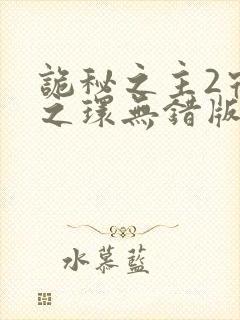 詭秘之主2
之環無錯版
水慕藍